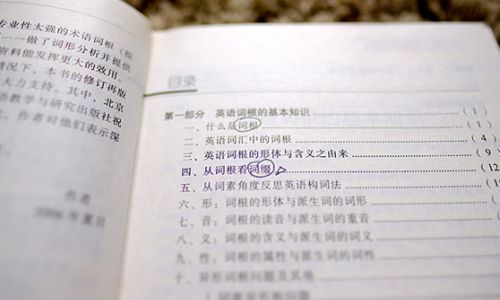 专业性太强的术语词根（
——做了词形分析并提供
资料能发挥更大的效用。
情况下，本书的修订再版
大力支持。其中，北京
语教学与研究出版社祝
，作者对他们表示深
作者
2006年夏日
目录
第一部分 英语词根的基本知识 ( 1 )
一、什么是词根 ( 1 )
二、英语词汇中的词根 ( 4 )
三、英语词根的形体与含义之由来 ( 9 )
四、从词根看词缀 (12
五、从词素角度反思英语构词法 (12
六、形：词根的形体与派生词的词形
七、音：词根的读音与派生词的重音
八、义：词根的含义与派生词的词义
九、性：词根的属性与派生词的词性
十、异形词根问题及其他